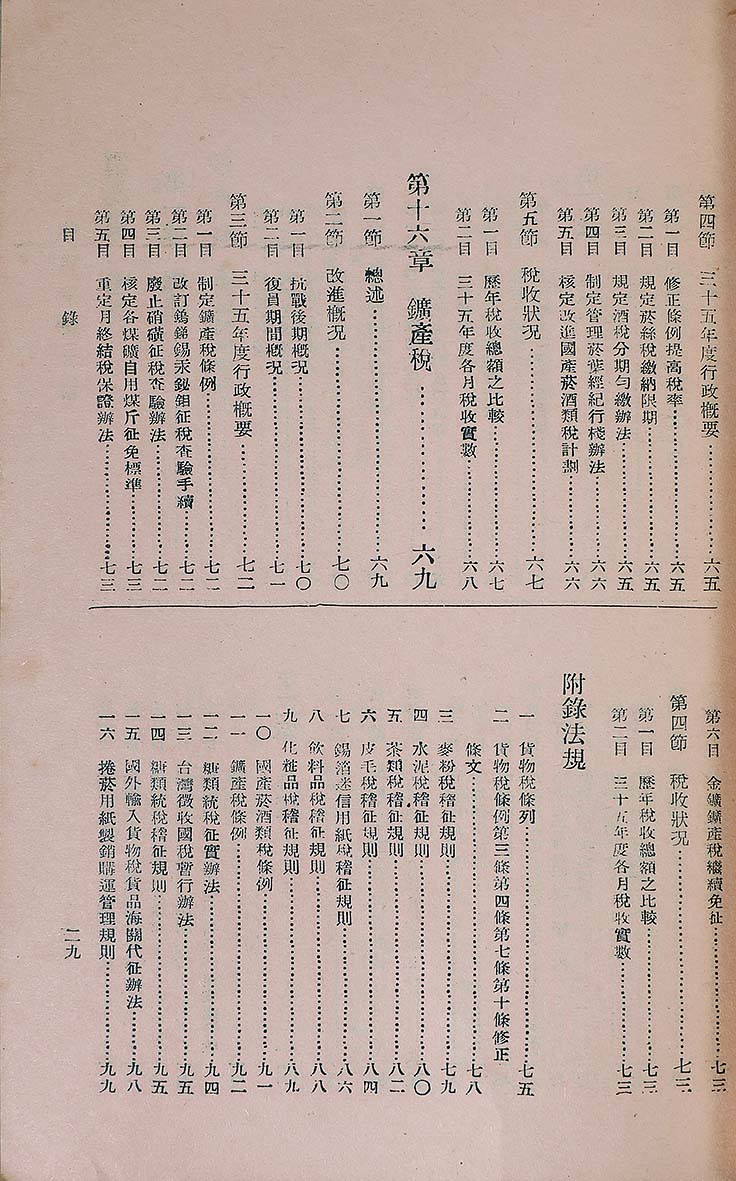 第四節　三十五年度行政概要……六五
第一目　修正條例提高稅率……六五
第二目　規定菸絲稅繳納限期……六五
第三目　規定酒稅分期勻繳辦法……六五
第四目　制定管理菸葉經紀行棧辦法……六六
第五目　核定改進國產菸酒類稅計劃……六六
第五節　稅收狀況……六七
第一目　歷年稅收總額之比較……六七
第二目　三十五年度各月稅收實數……六八
第十六章　鑛產稅……六九
第一節　總述……六九
第二節　改進概况……七〇
第一目　抗戰後期概况……七〇
第二目　復員期間概况……七一
第三節　三十五年度行政概要……七二
第一目　制定鑛產稅條例……七二
第二目　改訂鎢銻錫汞鉍鉬征稅查驗手續……七二
第三目　廢止硝磺征稅查驗辦法……七二
第四目　核定各煤礦自用煤斤征免標準……七三
第五目　重定月終結稅保證辦法……七三
第六目　金鑛鑛產稅繼續免征……七三
第四節　稅收狀况……七三
第一目　歷年稅收總額之比較……七三
第二目　三十五年度各月稅收實數……七三
附錄法規
一　貨物稅條列……七五
二　貨物稅條例第三條第四條第七條第十條修正
條文……七八
三　麥粉稅稽征規則……七九
四　水泥稅稽征規則……八〇
五　茶類稅稽征規則……八二
六　皮毛稅稽征規則……八四
七　錫箔迷信用紙稅稽征規則……八六
八　飲料品稅稽征規則……八八
九　化粧品稅稽征規則……八九
一〇　國產菸酒類稅條例……九一
一一　鑛產稅條例……九二
一二　糖類統稅征實辦法……九四
一三　台灣徵收國稅暫行辦法……九五
一四　糖類統稅稽征規則……九五
一五　國外輸入貨物稅貨品海關代征辦法……九八
一六　捲菸用紙製銷購運管理規則……九九
目　錄
二九